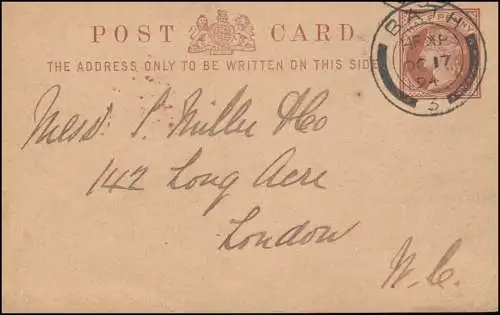 POST CARD
THE ADDRESS ONLY TO BE WRITTEN ON THIS SIDE
BATH
OC 17
94
5
Messrs S. Miller & Co
142 Long Acre
London
W.C.